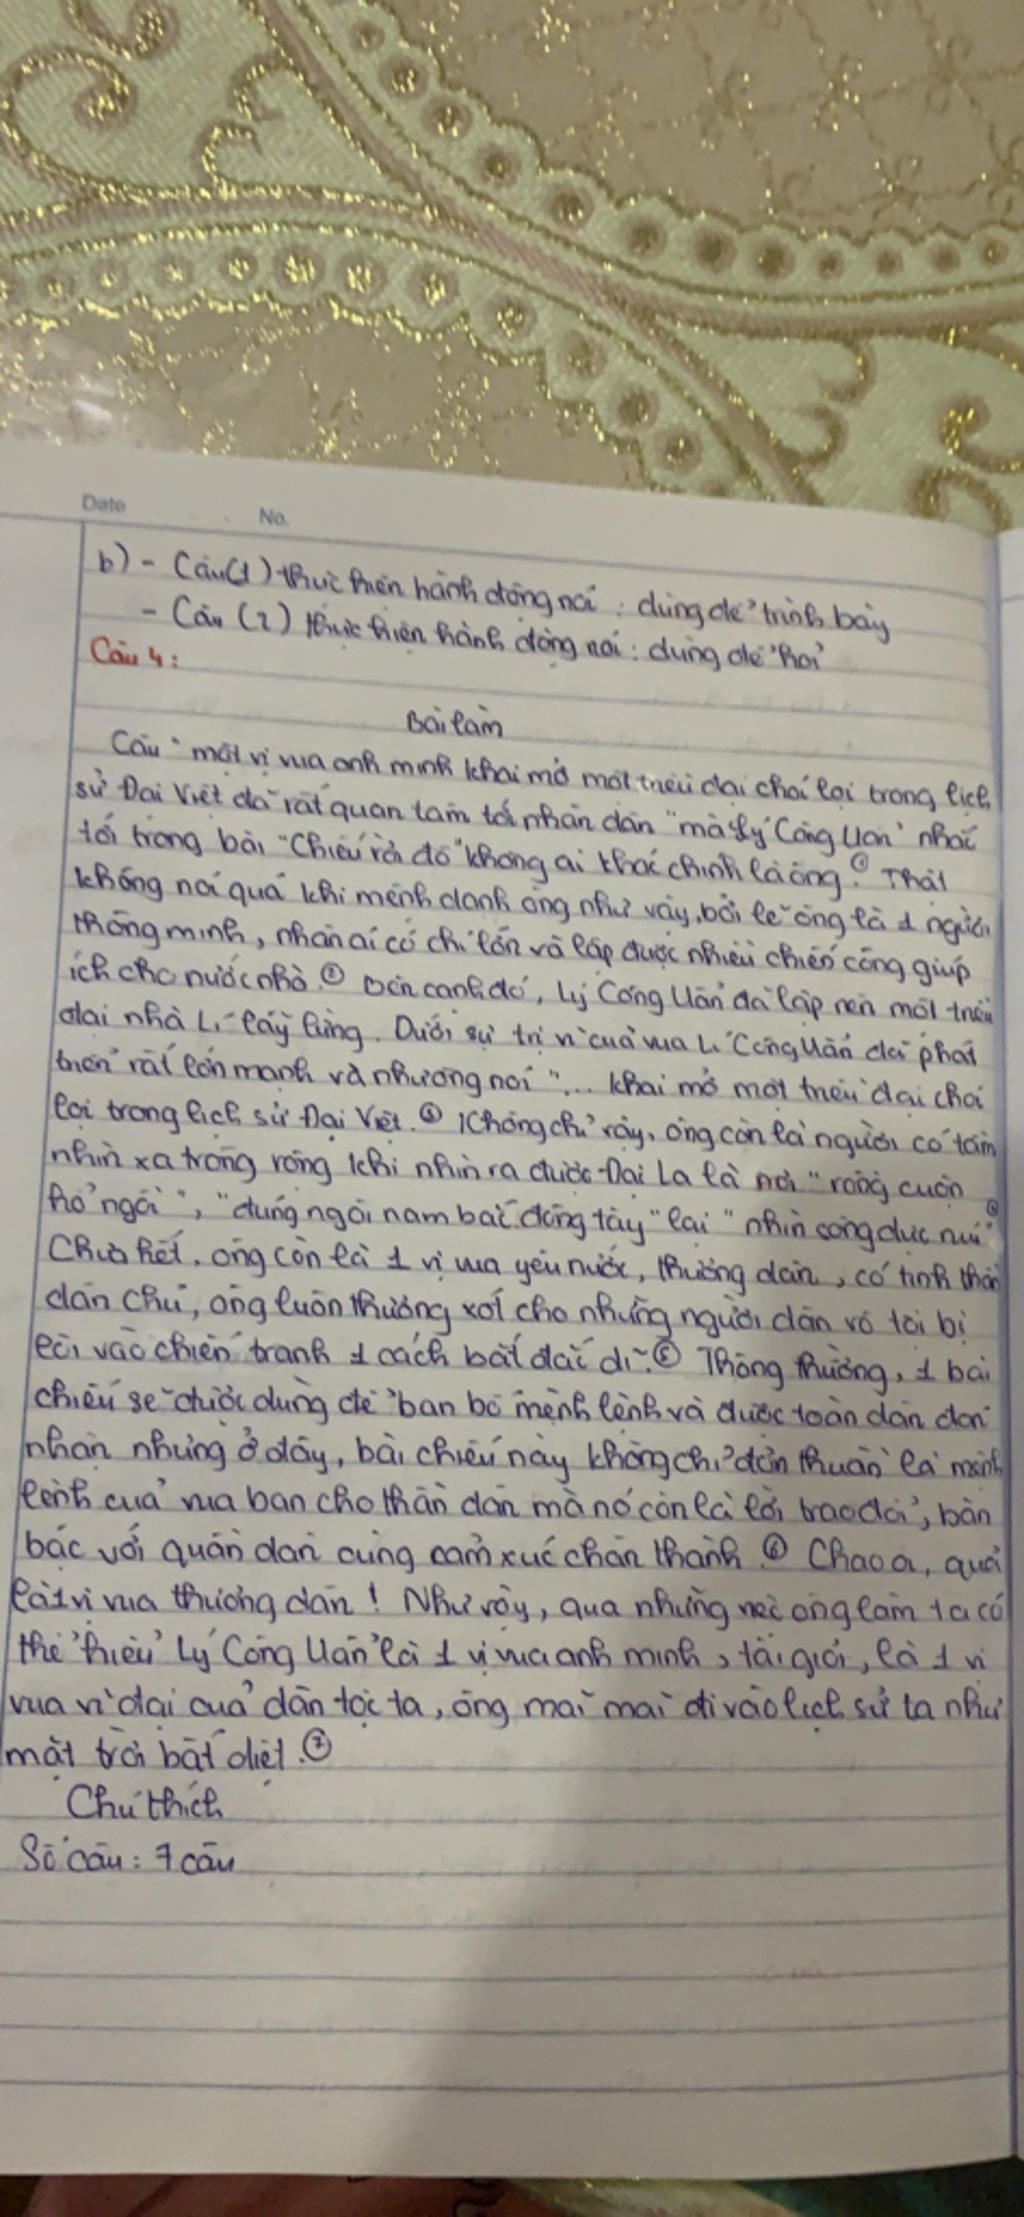 Date No.
b) - Câu (1) thực hiện hành động nói : dùng để trình bày
- Câu (2) thực hiện hành động nói : dùng để hỏi
Câu 4 :
Bài làm
Câu " một vị vua anh minh khai mở một triều đại chói lọi trong lịch
sử Đại Việt đã rất quan tâm tới nhân dân " mà Lý Công Uẩn nhắc
tới trong bài "Chiếu rời đô" không ai khác chính là ông. ① Thật
không nói quá khi mệnh danh ông như vậy, bởi lẽ ông là 1 người
thông minh, nhân ái có chí lớn và lập được nhiều chiến công giúp
ích cho nước nhà. ② Bên cạnh đó, Lý Công Uẩn đã lập nên một triều
đại nhà Lí lẫy lừng. Dưới sự trị vì của vua Lí Công Uẩn đã phát
triển rất lớn mạnh và nhường nói "... khai mở một triều đại chói
lọi trong lịch sử Đại Việt. ③ Không chỉ vậy, ông còn là người có tầm
nhìn xa trông rộng khi nhìn ra được Đại La là nơi "rồng cuộn
hổ ngồi", "đúng ngôi nam bắc đông tây" lại "nhìn sông dực núi" ④
Chưa hết, ông còn là 1 vị vua yêu nước, thương dân, có tinh thần
dân chủ, ông luôn thương xót cho những người dân vô tội bị
lôi vào chiến tranh 1 cách bất đắc dĩ. ⑤ Thông thường, 1 bài
chiếu sẽ được dùng để ban bố mệnh lệnh và được toàn dân đón
nhận nhưng ở đây, bài chiếu này không chỉ đơn thuần là mệnh
lệnh của vua ban cho thần dân mà nó còn là lời trao đổi, bàn
bạc với quần dân cùng cảm xúc chân thành ⑥ Chao ôi, quả
là 1 vị vua thương dân ! Như vậy, qua những việc ông làm ta có
thể hiểu Lý Công Uẩn là 1 vị vua anh minh, tài giỏi, là 1 vị
vua vĩ đại của dân tộc ta, ông mãi mãi đi vào lịch sử ta như
mặt trời bất diệt. ⑦
Chú thích
Số câu : 7 câu